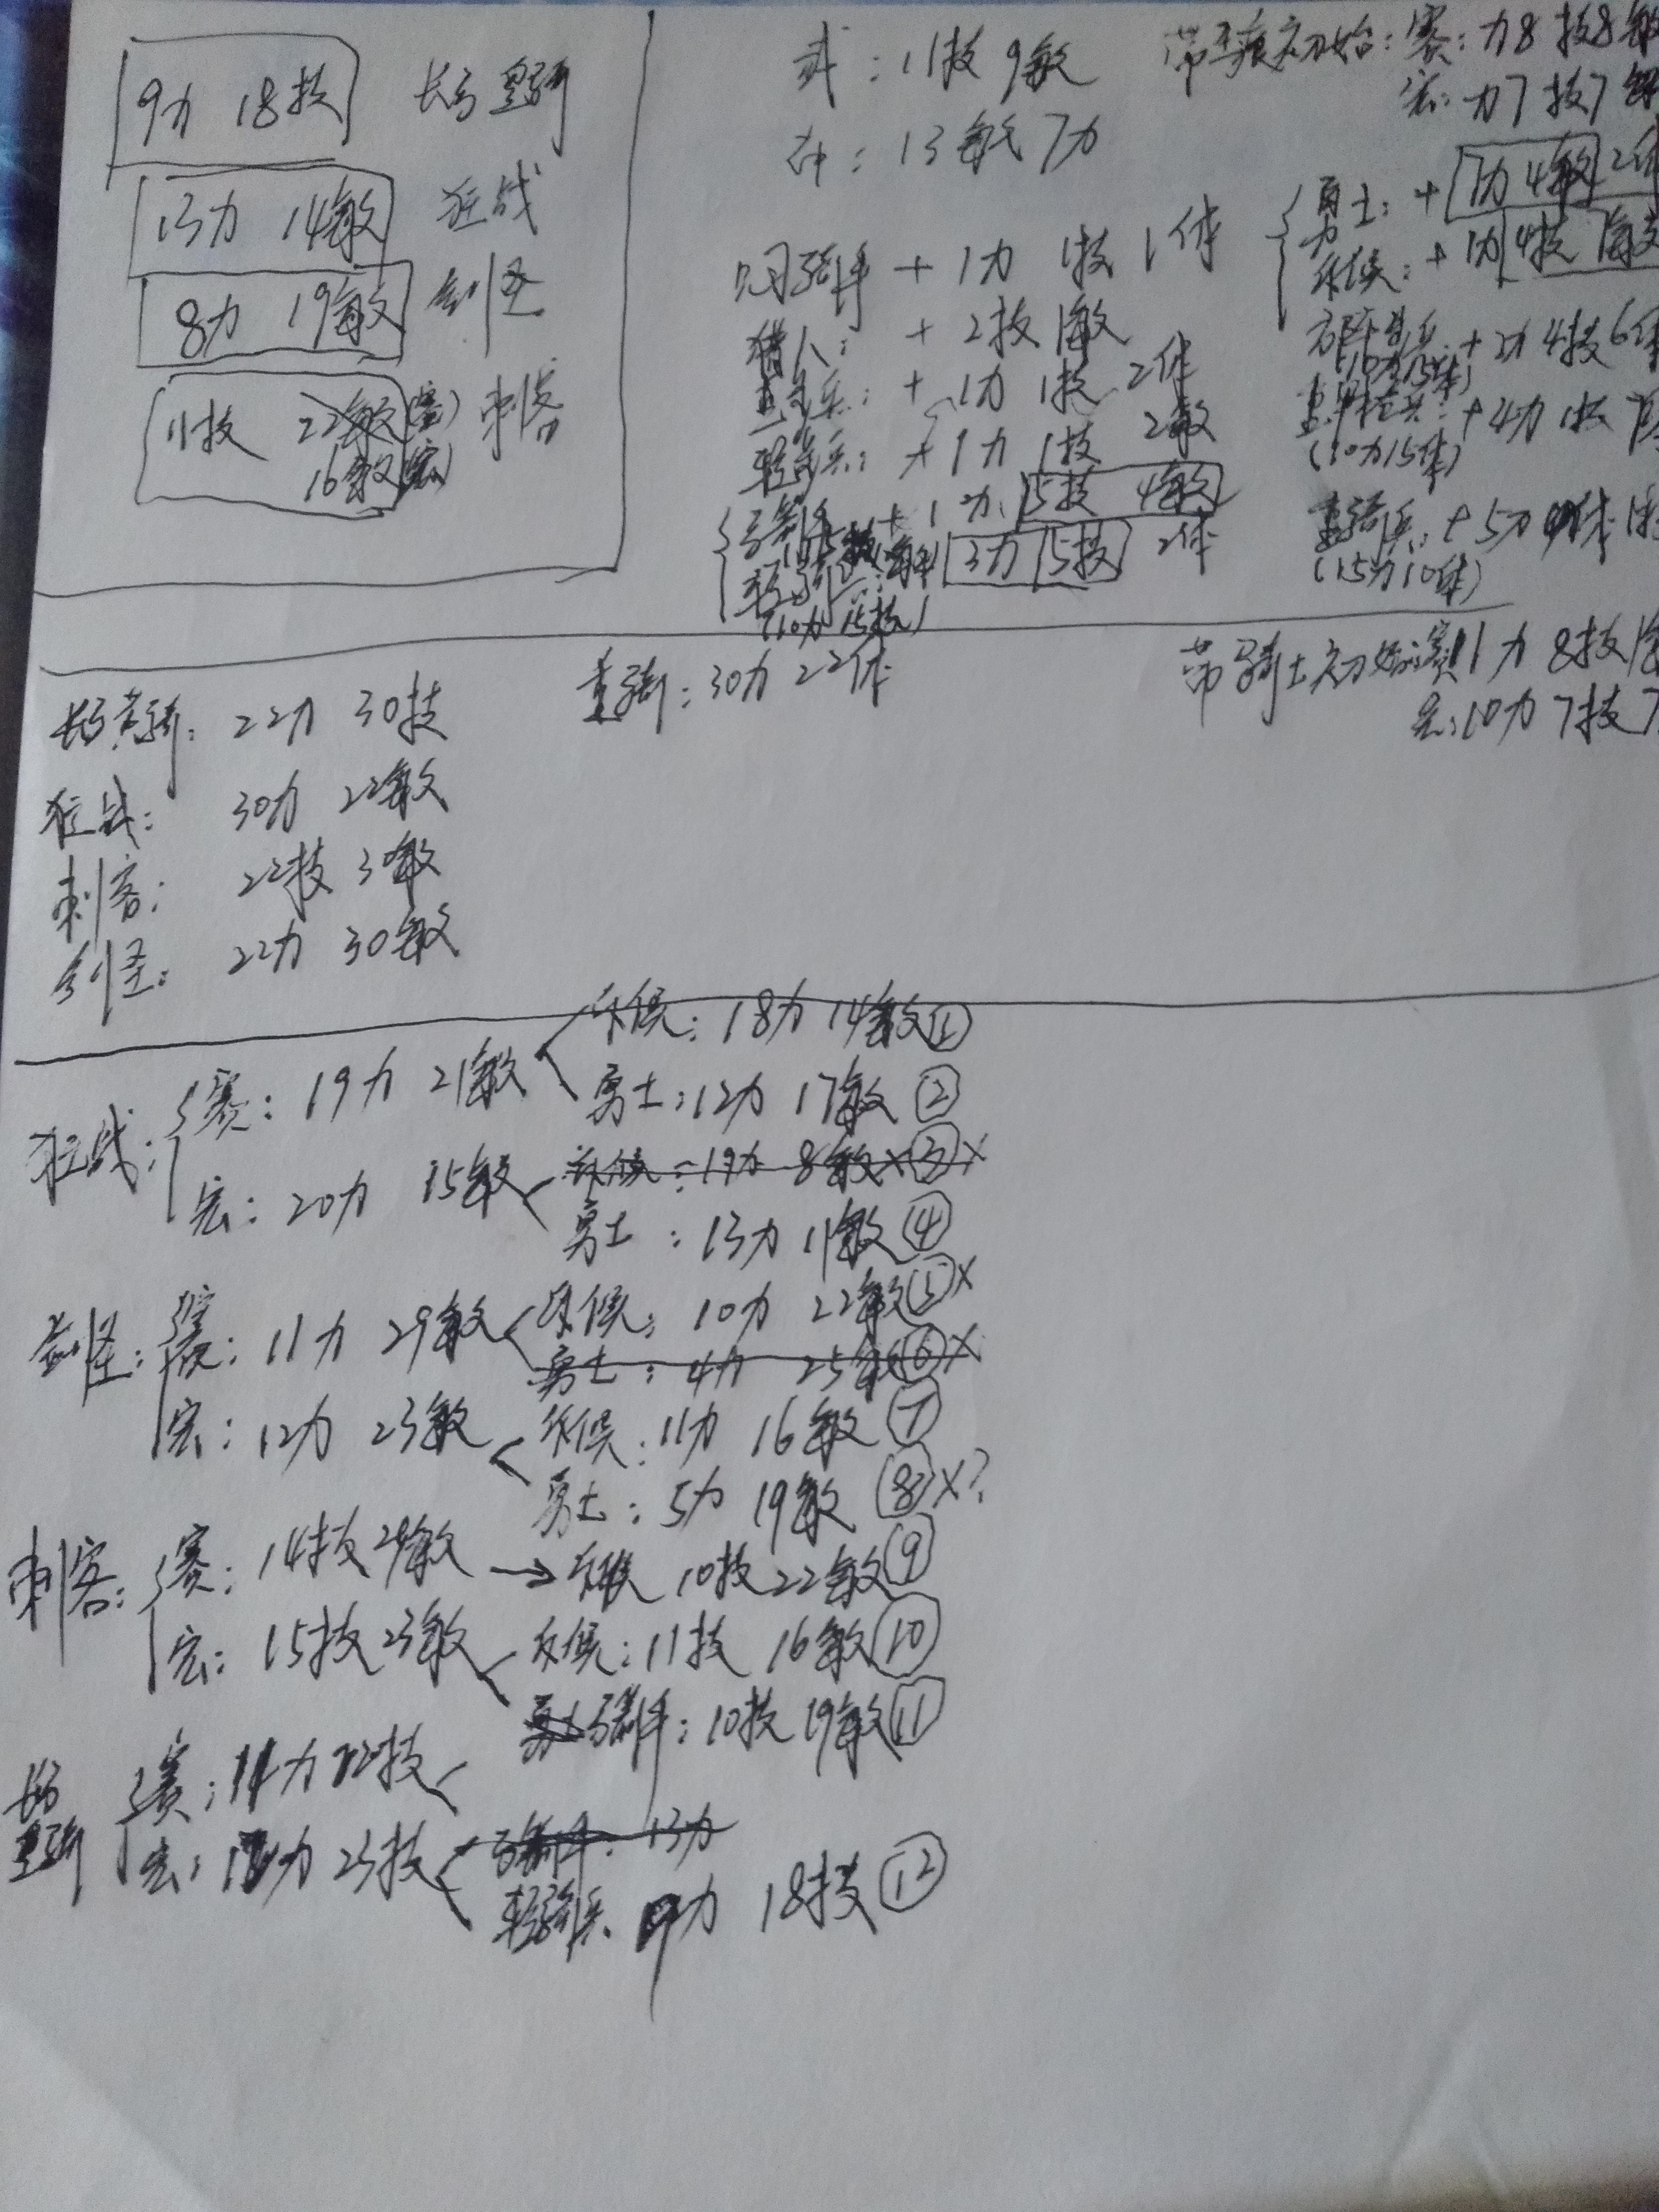 9力 18技 长弓重骑
13力 14敏 狂战
8力 19敏 剑圣
11技 22敏(赛) 刺客
16敏(宏)
武：11技 9敏
13敏 7力
带 初始：赛：力8 技8 敏
宏：力7 技7 敏
骑手 + 1力 1技 1体
猎人： + 2技 1敏
兵： + 1力 1技 2体
轻骑兵： + 1力 1技 2敏
弓箭手 + 1力 5技 4敏
轻骑兵： 3力 5技 2体
(10力 15技)
勇士： + 7力 4敏 2体
斥候： + 1力 4技 7敏
+ 2力 4技 6体
(10力15体)
+ 4力 1技 7体
(10力15体)
重骑兵： + 5力 体
(15力10体)
长弓重骑：22力 30技
重骑：30力 22体
带骑士初始：赛11力 8技
宏：10力 7技 7
狂战： 30力 22敏
刺客： 22技 30敏
剑圣： 22力 30敏
狂战：
赛：19力 21敏
斥候：18力 14敏 ①
勇士：12力 17敏 ②
宏：20力 15敏
斥候：19力 8敏 × ③ ×
勇士：13力 11敏 ④
剑圣：
赛：11力 29敏
斥候：10力 22敏 ⑤ ×
勇士：4力 25敏 ⑥ ×
宏：12力 23敏
斥候：11力 16敏 ⑦
勇士：5力 19敏 ⑧ ×?
刺客：
赛：14技 29敏 → 斥候 10技 22敏 ⑨
宏：15技 23敏
斥候：11技 16敏 ⑩
弓箭手：10技 19敏 ⑪
长弓重骑
赛：11力 22技
宏：12力 23技
弓箭手：13力
轻骑兵 9力 18技 ⑫